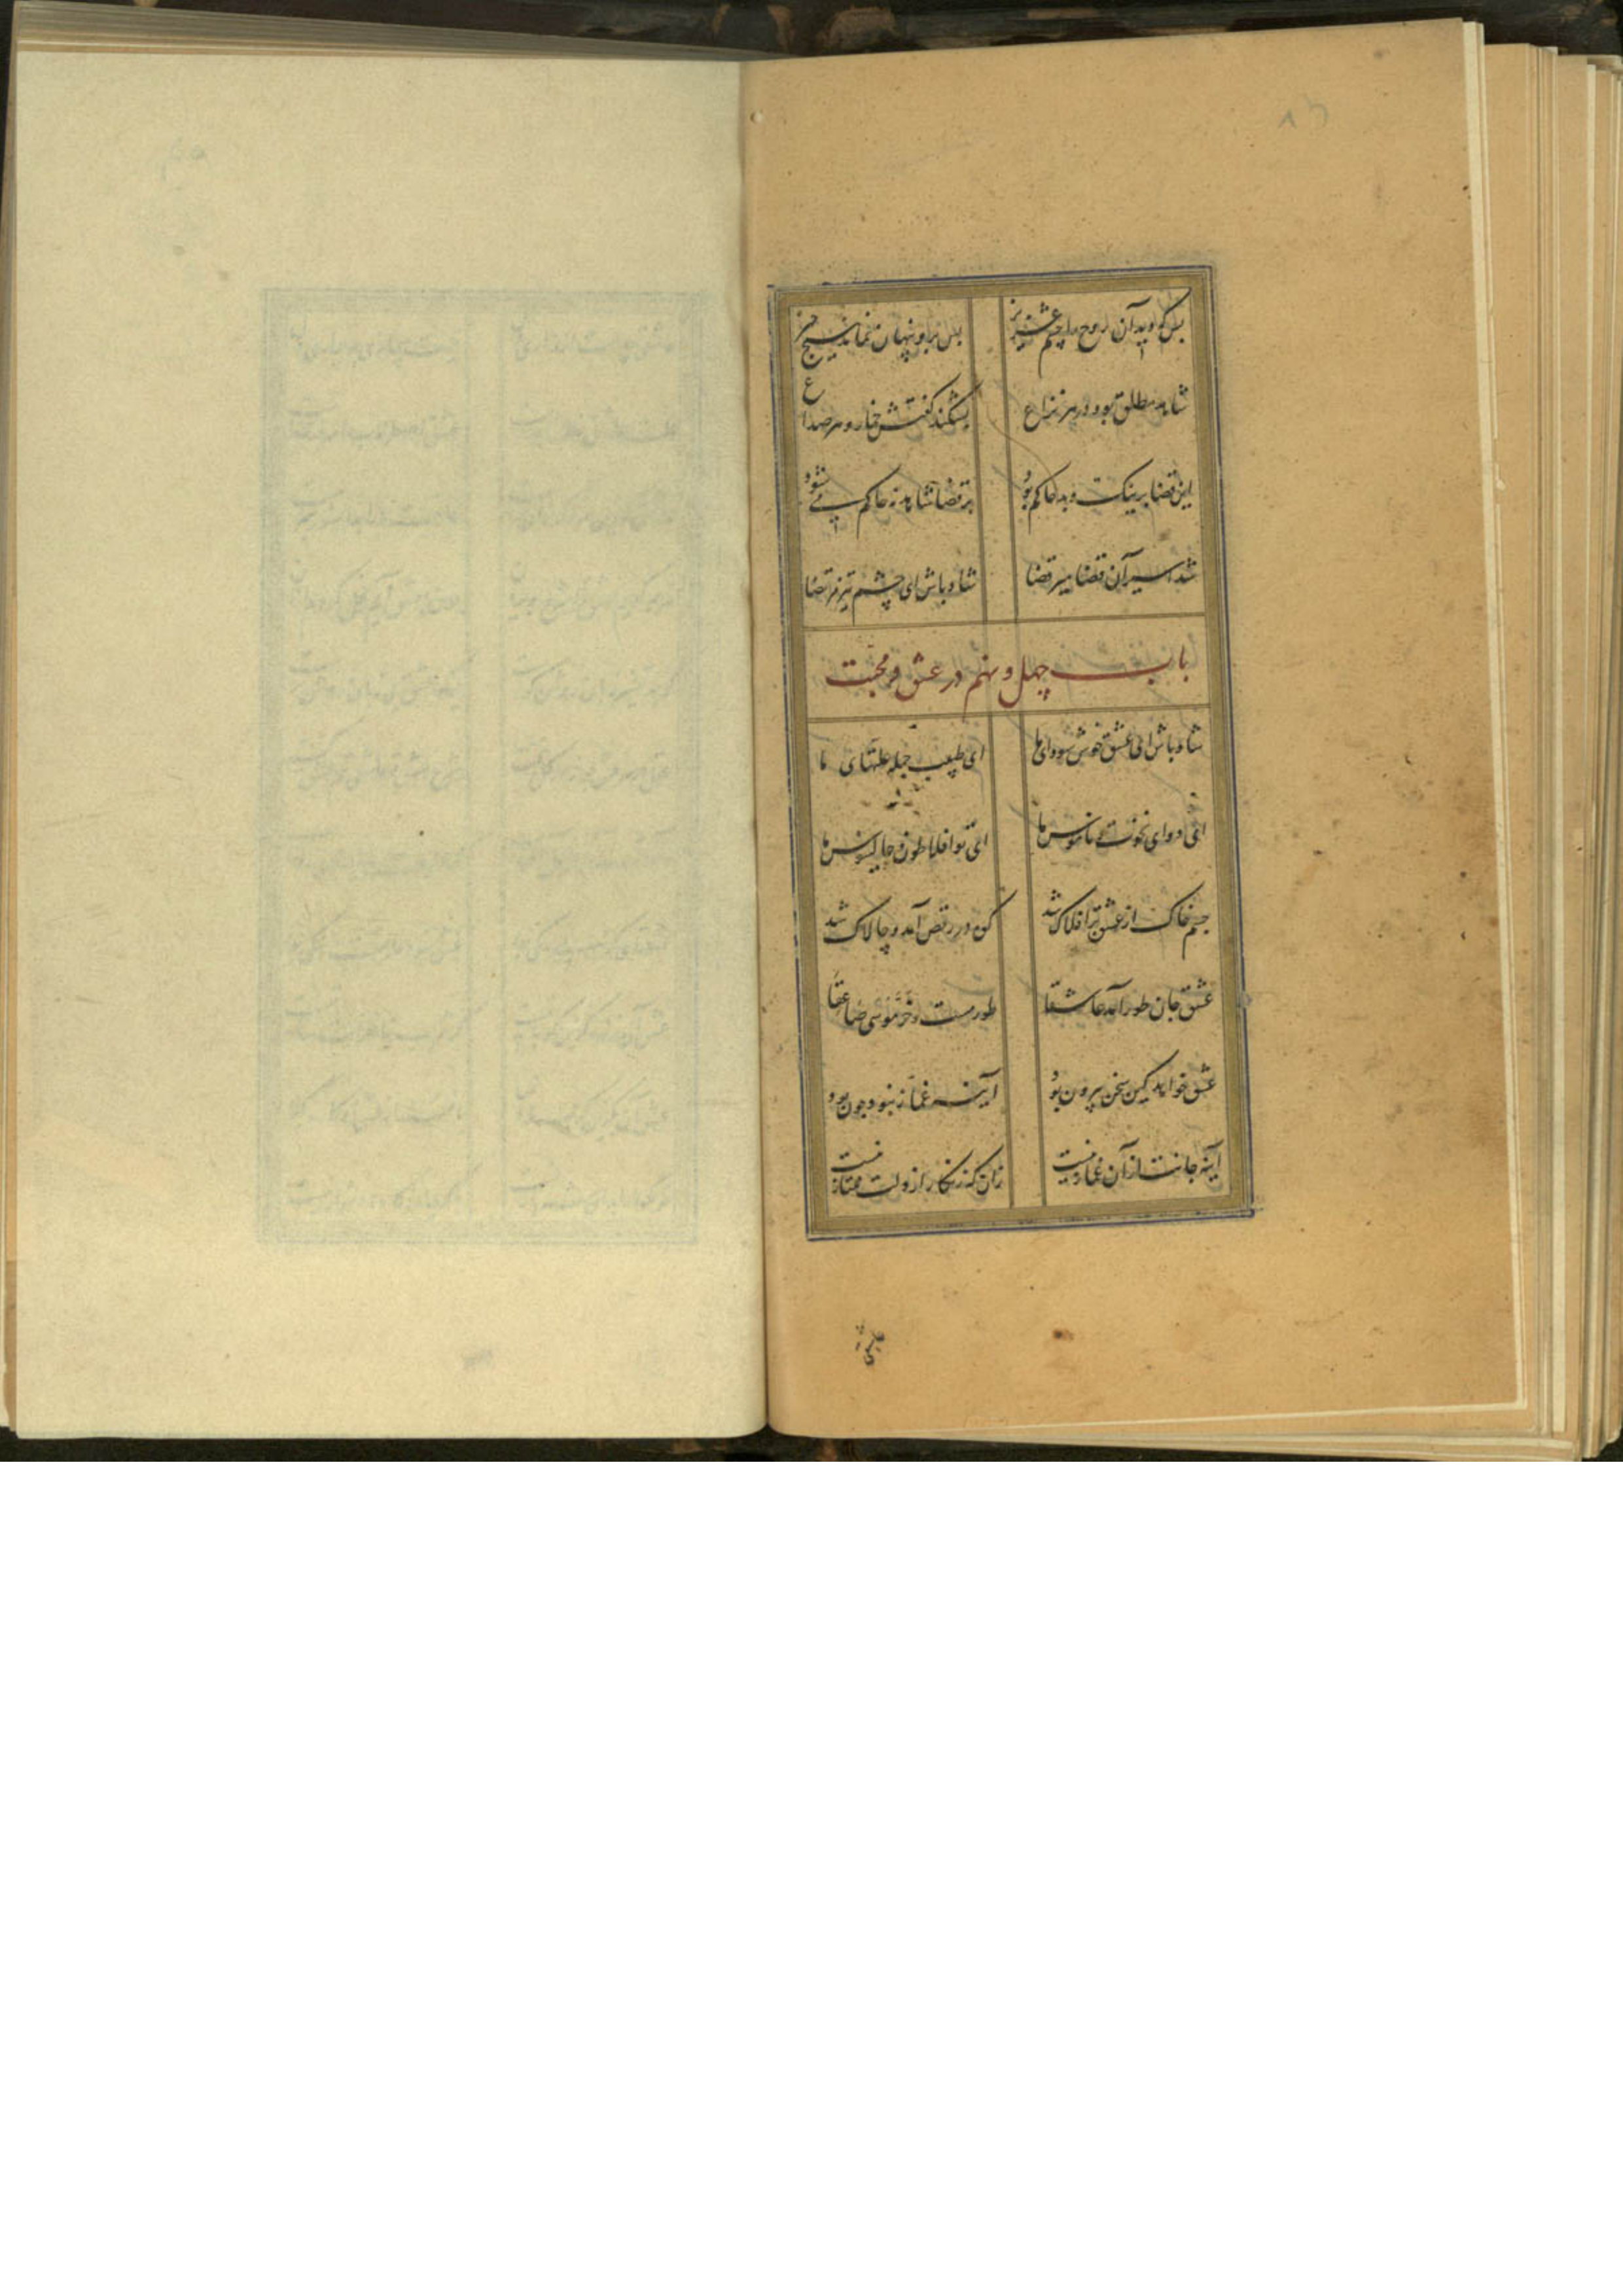 پس کو دید آن روح را چشم عزیز پس برو پنهان نماند هیچ چیز
شاهد مطلق بود در هر نزاع بشکند گفتش خمار هر صداع
این قضا بر نیک و بد حاکم بود بر قضا شاهد نه حاکم می شود
شد اسیر آن قضا میر قضا شاد باش ای چشم تیز مرتضا
باب چهل و نهم در عشق و محبت
شاد باش ای عشق خوش سودای ما ای طبیب جمله علتهای ما
ای دوای نخوت و ناموس ما ای تو افلاطون و جالینوس ما
جسم خاک از عشق بر افلاک شد کوه در رقص آمد و چالاک شد
عشق جان طور آمد عاشقا طور مست و خر موسی صاعقا
عشق خواهد کین سخن بیرون بود آینه غماز نبود چون بود
آینه جانت از آن غماز نیست زان که زنگار از دلت ممتاز نیست